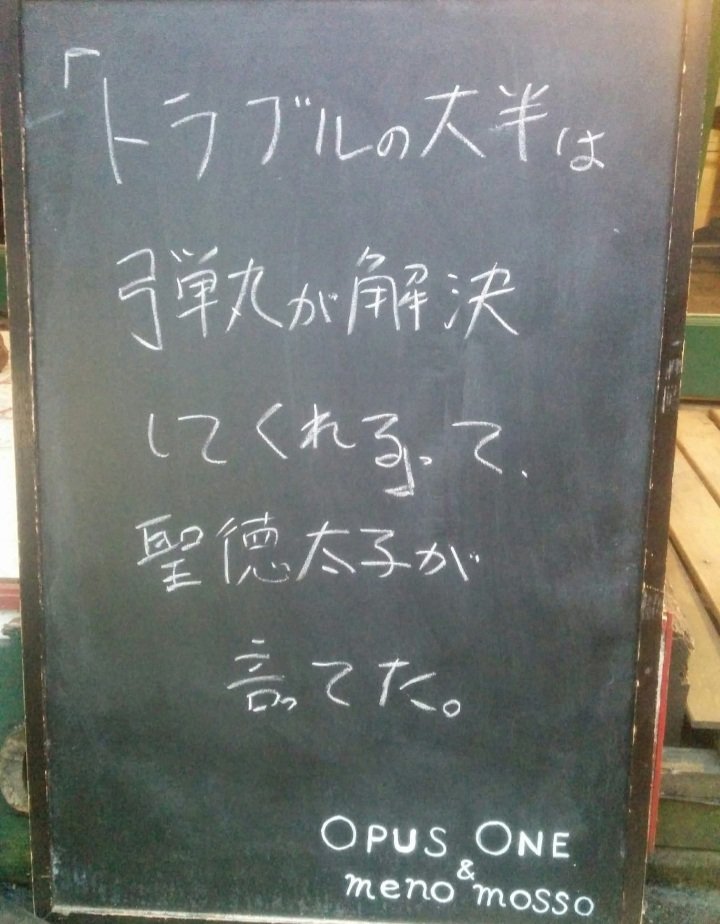 「トラブルの大半は
弾丸が解決
してくれる」って、
聖徳太子が
言ってた。
OPUS ONE
&
meno mosso